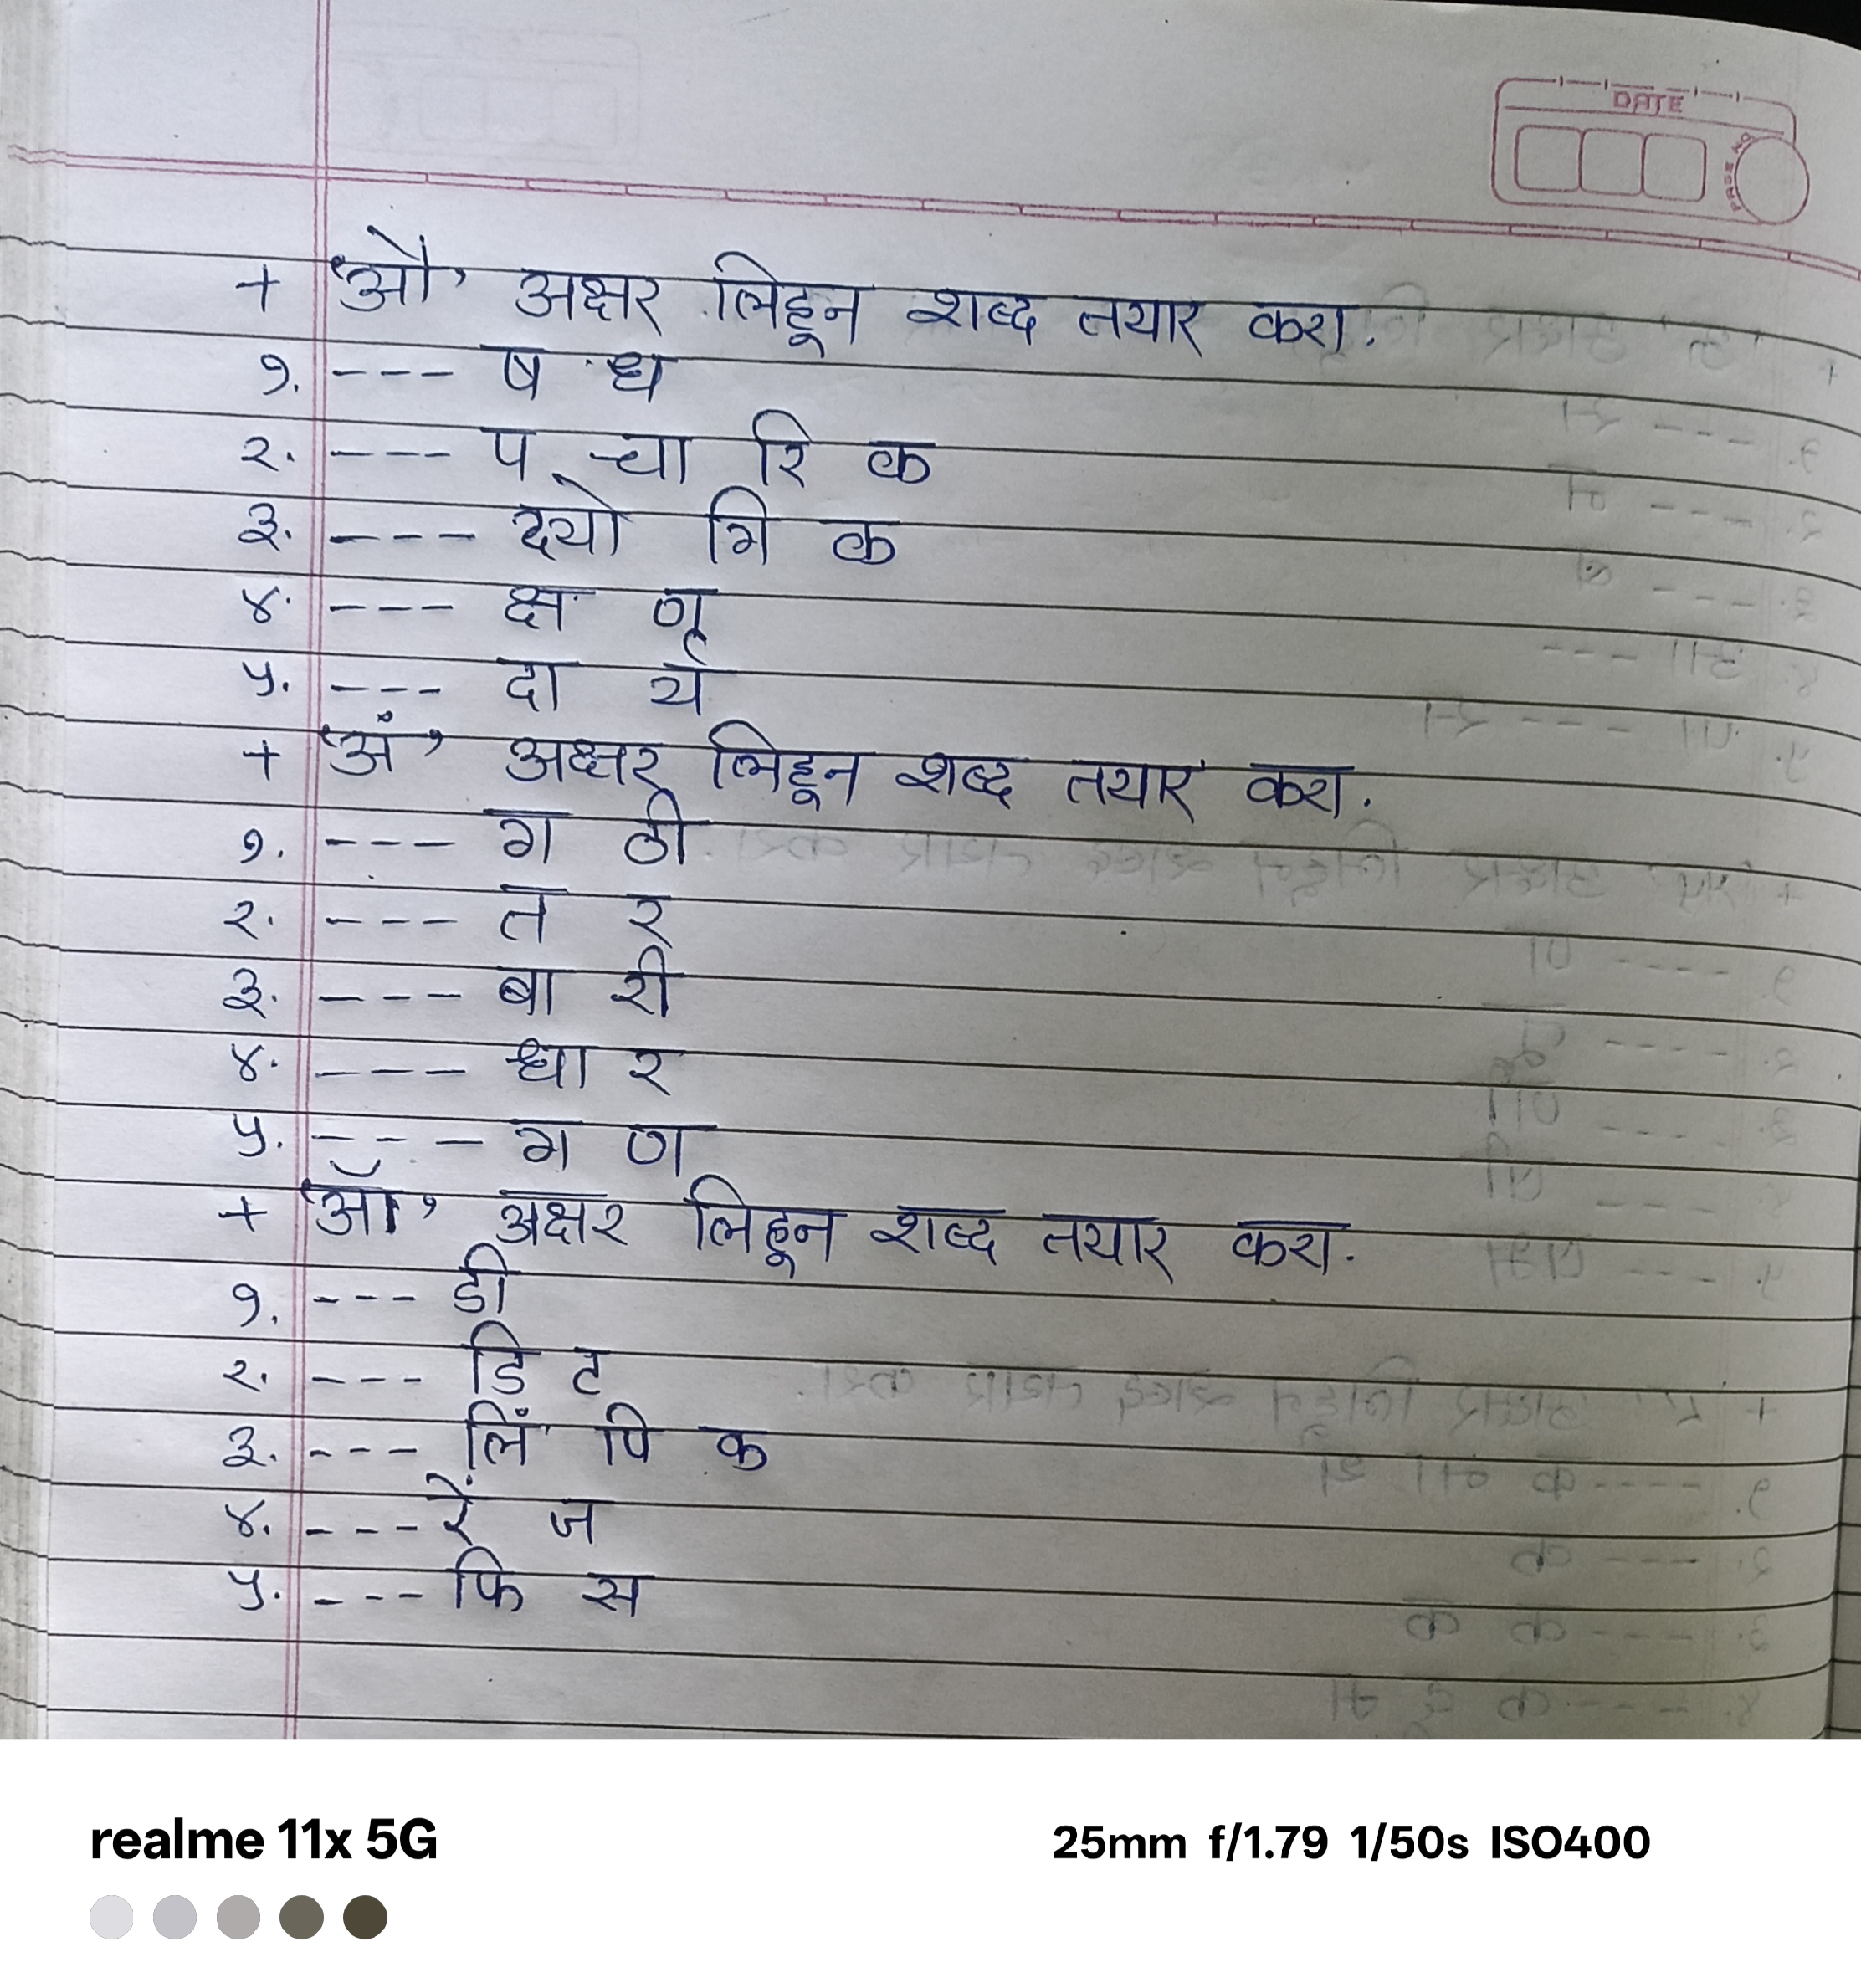 DATE
PAGE NO
+ 'औ' अक्षर लिहून शब्द तयार करा.
१. --- ष ध
२. --- प चा रि क
३. ---- द्यो गि क
४. --- क्ष ण
५. --- दा र्य
+ 'अं' अक्षर लिहून शब्द तयार करा.
१. --- ग ठी
२. --- त र
३. ---- बा री
४. ---- धा र
५. ---- ग ण
+ 'ऑ' अक्षर लिहून शब्द तयार करा.
१. --- डी
२. --- डि ट
३. --- लिं पि क
४. --- रें ज
५. --- फि स
realme 11x 5G
25mm f/1.79 1/50s ISO400